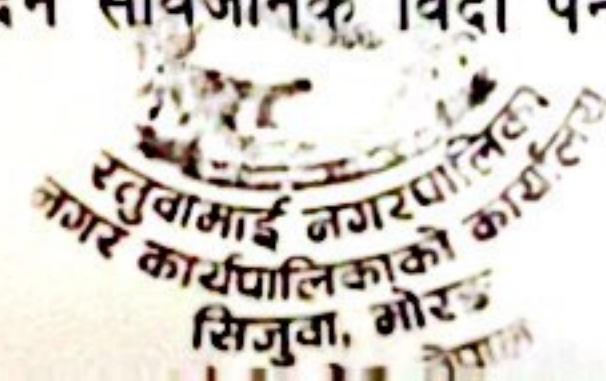 सार्वजनिक विदा
रतुवामाई नगरपालिका
नगर कार्यपालिकाको कार्यालय
सिजुवा, मोरङ
नेपाल